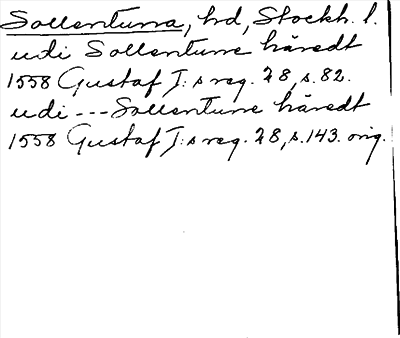 Sollentuna, hd, Stockh. l.
udi Sollentune häredt
1558 Gustaf I:s reg. 28, s. 82.
udi --- Sollentune häredt
1558 Gustaf I:s reg. 28, s. 143. orig.